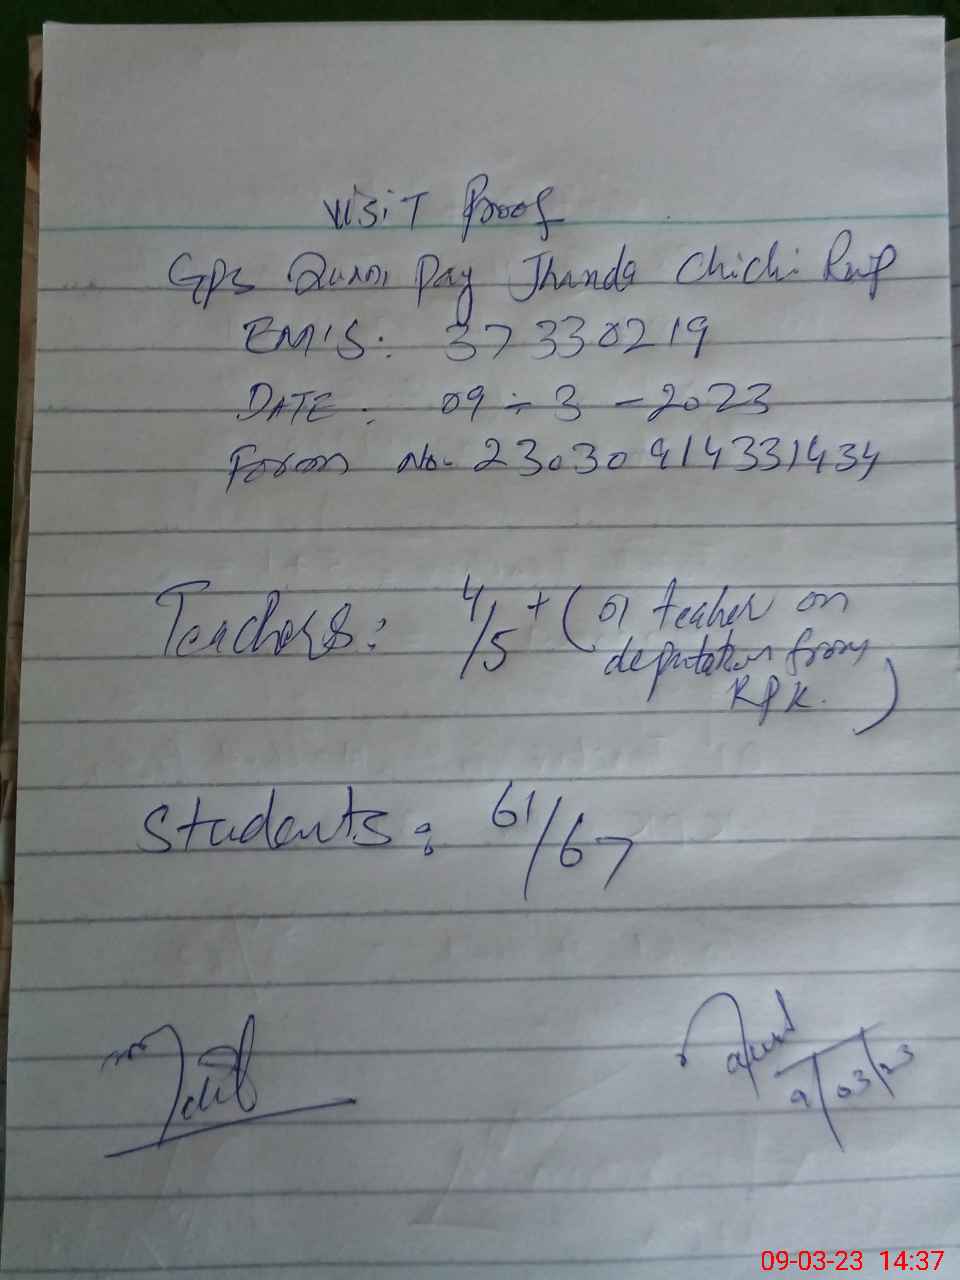 Visit Proof
GPS Qurni Pay Jhanda Chichi Rwp
EMIS: 37330219
DATE: 09 - 3 - 2023
Form No. 23030914331434
Teachers: 4/5 + (01 teacher on
deputation from
KPK.)
Students: 61/67
9/03/23
09-03-23 14:37